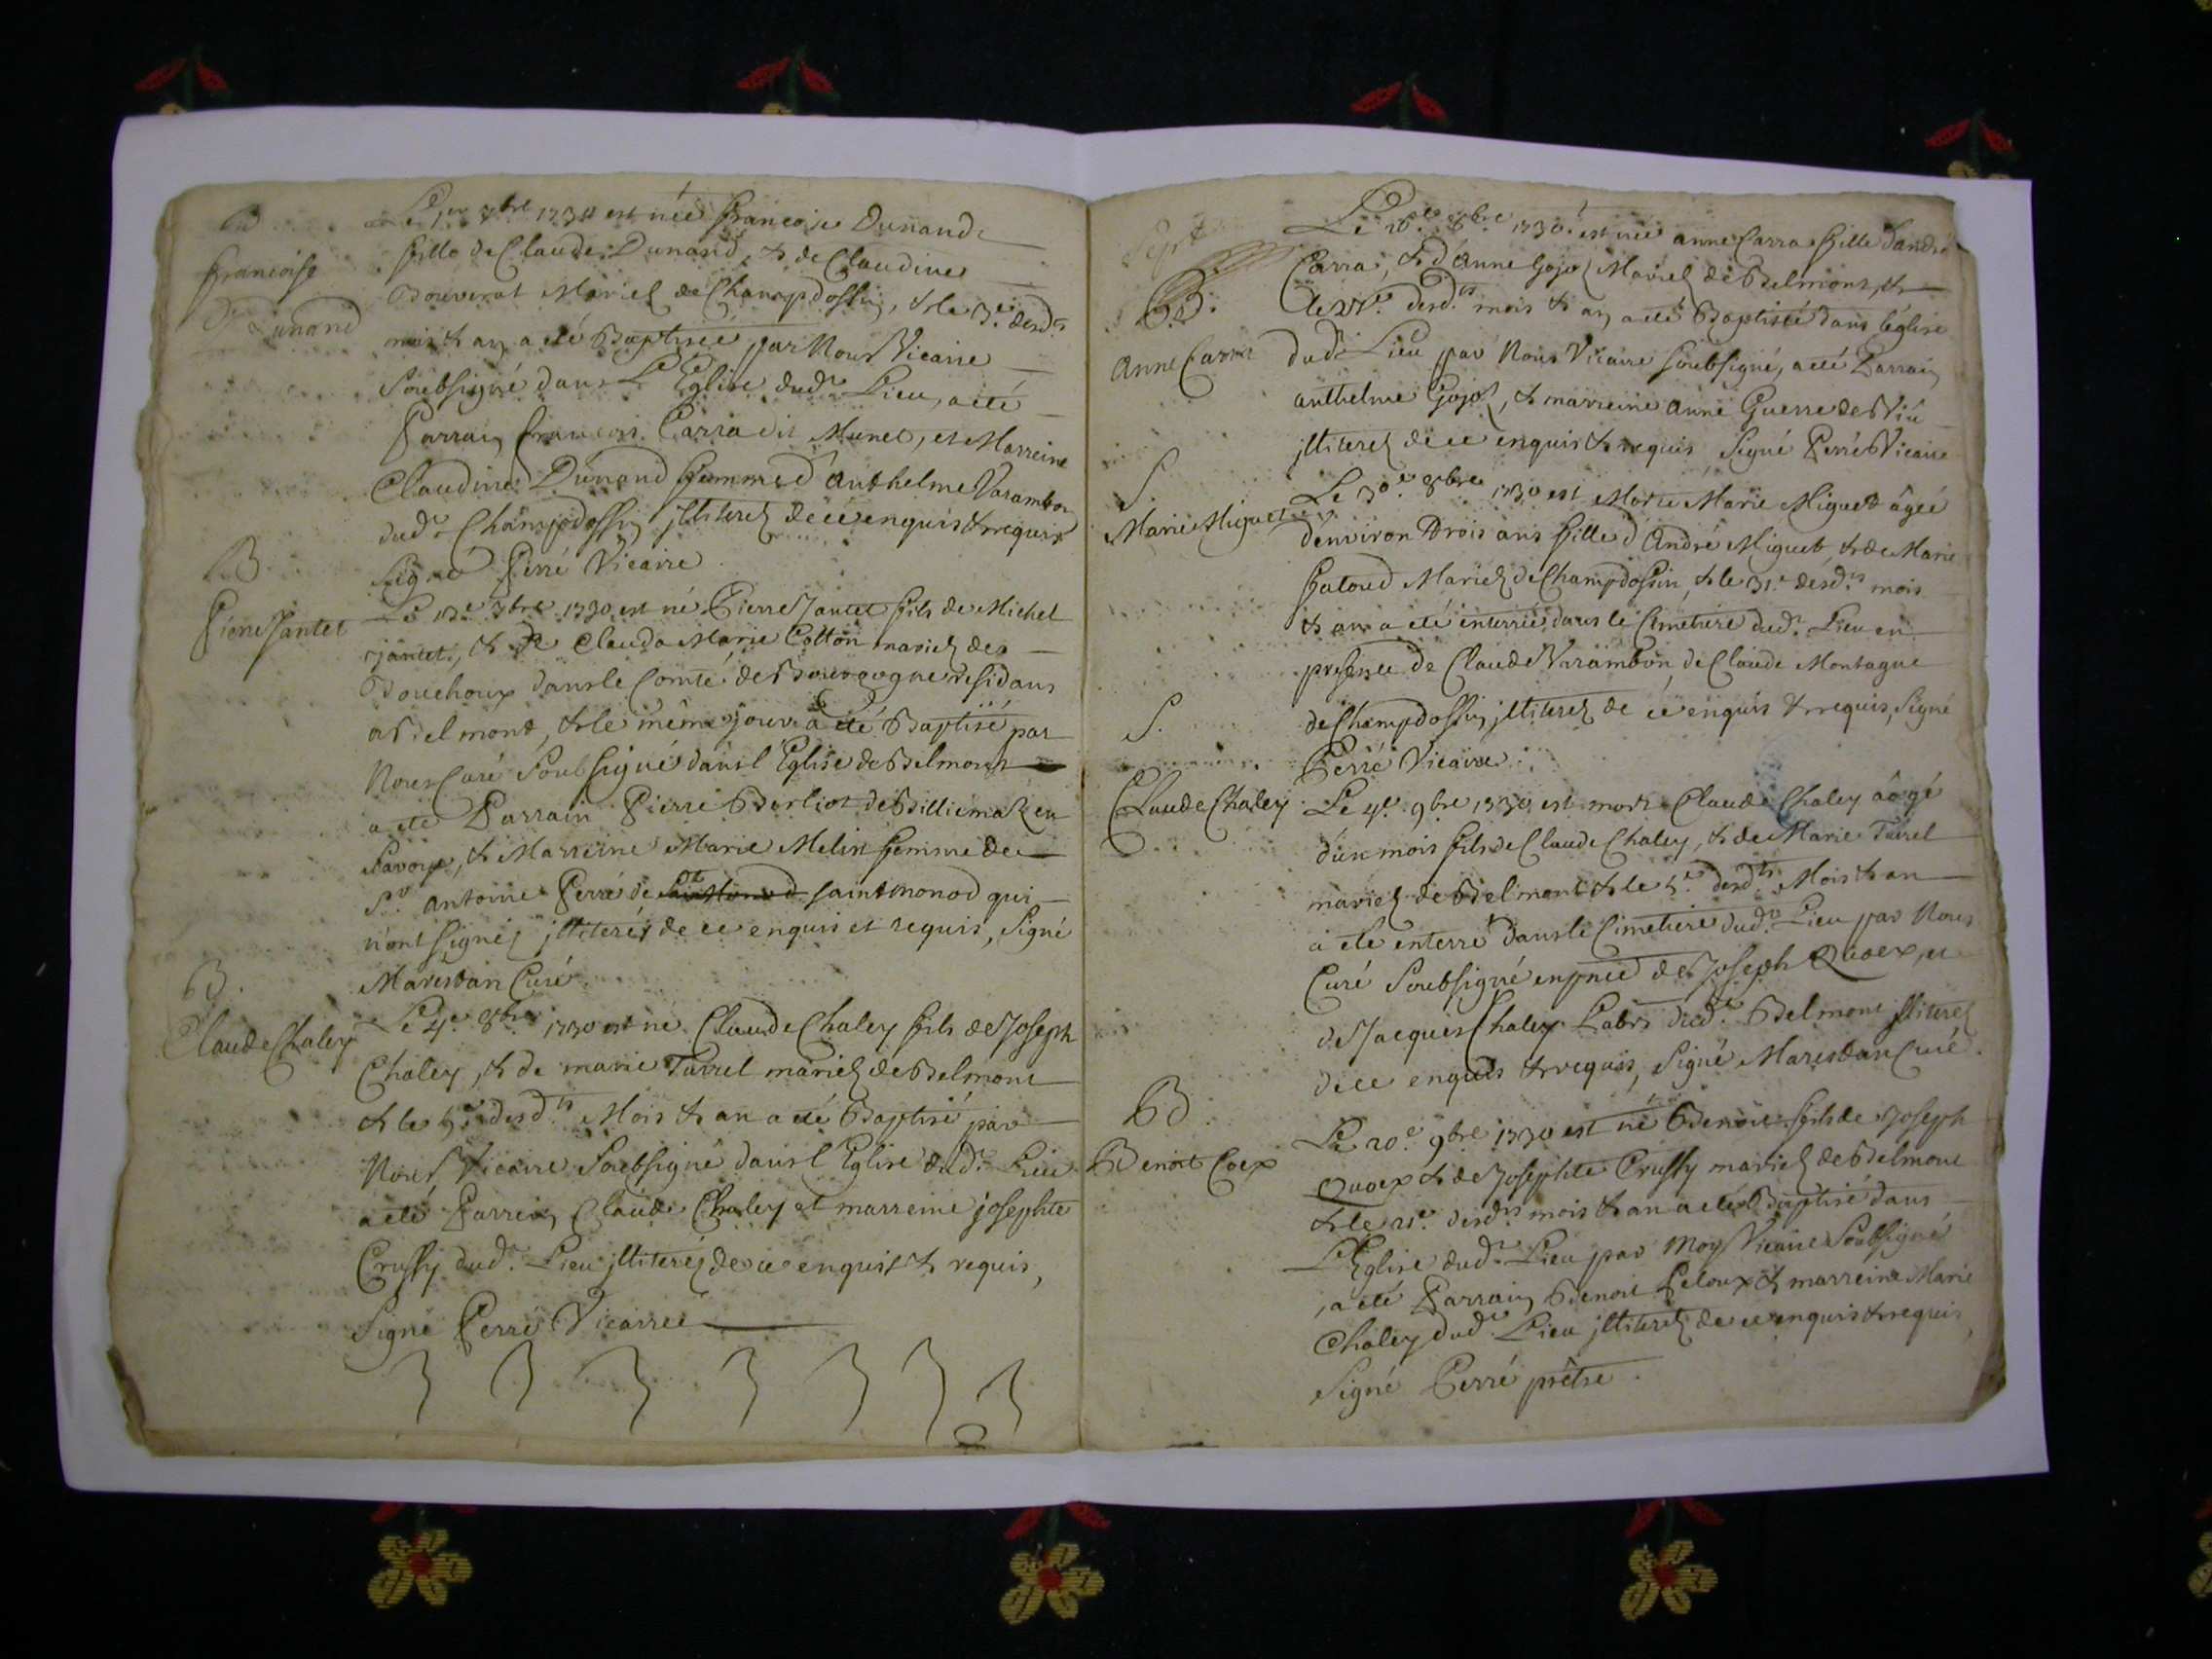 B
francoise
Dunand
Le 1er 7bre 1730 est née francoise Dunand
fille de Claude Dunand, & de Claudine
Bouverat Mariez de Champdossin, & le 3e desdts
mois & an a été Baptisée par Nous Vicaire
Soubsigné dans L'Eglise dudt Lieu, a été
Parrain francois Carra dit Munet, et Marreine
Claudine Dunand femme d'Anthelme Varambon
dudt Champdossin illiterez de ce enquis & requis
Signé Perré Vicaire
B
Pierre Jantet
Le 13e 7bre 1730 est né Pierre Jantet fils de Michel
jantet, & de Clauda Marie Cotton mariez des
Bouchoux dans le Comté de Bourgogne residans
a Belmont, & le même jour a été Baptisé par
Nous Curé Soubsigné dans l'Eglise de Belmont
a été Parrain Pierre Berliot de Billiema en
Savoye, & Marreine Marie Melin femme de
Sr antoine Perré de saintmonod qui
n'ont signéz illiteréz de ce enquis et requis, Signé
Marestan Curé.
B.
Claude Chaley
Le 4e 8bre 1730 est né Claude Chaley fils de Joseph
Chaley, & de marie Turrel mariez de Belmont
& le 5e desdts Mois & an a été Baptisé par
Nous Vicaire Soubsigné dans l'Eglise dudt Lieu
a été Parrein Claude Chaley et marreine josephte
Crussy dudt Lieu illiteréz de ce enquis & requis,
Signé Perré Vicaire
B.
Anne Carra
Le 26e 8bre 1730 est née anne Carra fille d'andré
Carra, & d'anne Gojoz Mariez de Belmont, &
le 27e desdts mois & an a été Baptisée dans l'église
dudt Lieu par Nous Vicaire soubsigné, a été Parrain
anthelme Gojoz, & marreine anne Guerre de Viu
illiterez de ce enquis & requis Signé Perré Vicaire
S
Marie Miguet
Le 30e 8bre 1730 est Morte Marie Miguet âgée
d'environ Trois ans fille d'André Miguet & de Marie
Galoud Mariez de Champdossin, & le 31e desdts mois
& an a été enterrée dans le Cimetiere dudt Lieu en
presence de Claude Varambon, de Claude Montague
de Champdossin illiterez de ce enquis & requis, Signé
Perré Vicaire.
S.
Claude Chaley
Le 4e 9bre 1730 est mort Claude Chaley âagé
d'un mois fils de Claude Chaley, & de Marie Turrel
mariez de Belmont & le 5e desdts Mois & an
a été enterré dans le Cimetiere dudt Lieu par Nous
Curé Soubsigné en pnce de Joseph Quoex, et
de Jacques Chaley Labrs dudt Belmont illiterez
de ce enquis & requis, Signé Marestan Curé.
B
Benoit Coex
Le 20e 9bre 1730 est né Benoit fils de Joseph
Quoex & de Josephte Crussy mariez de Belmont
& le 21e desdts mois & an a été Baptisé dans
L'Eglise dudt Lieu par Moy Vicaire Soubsigné
, a été Parrain Benoit Peloux & marreine Marie
Chaley dudt Lieu illiterez de ce enquis & requis,
Signé Perré prêtre.